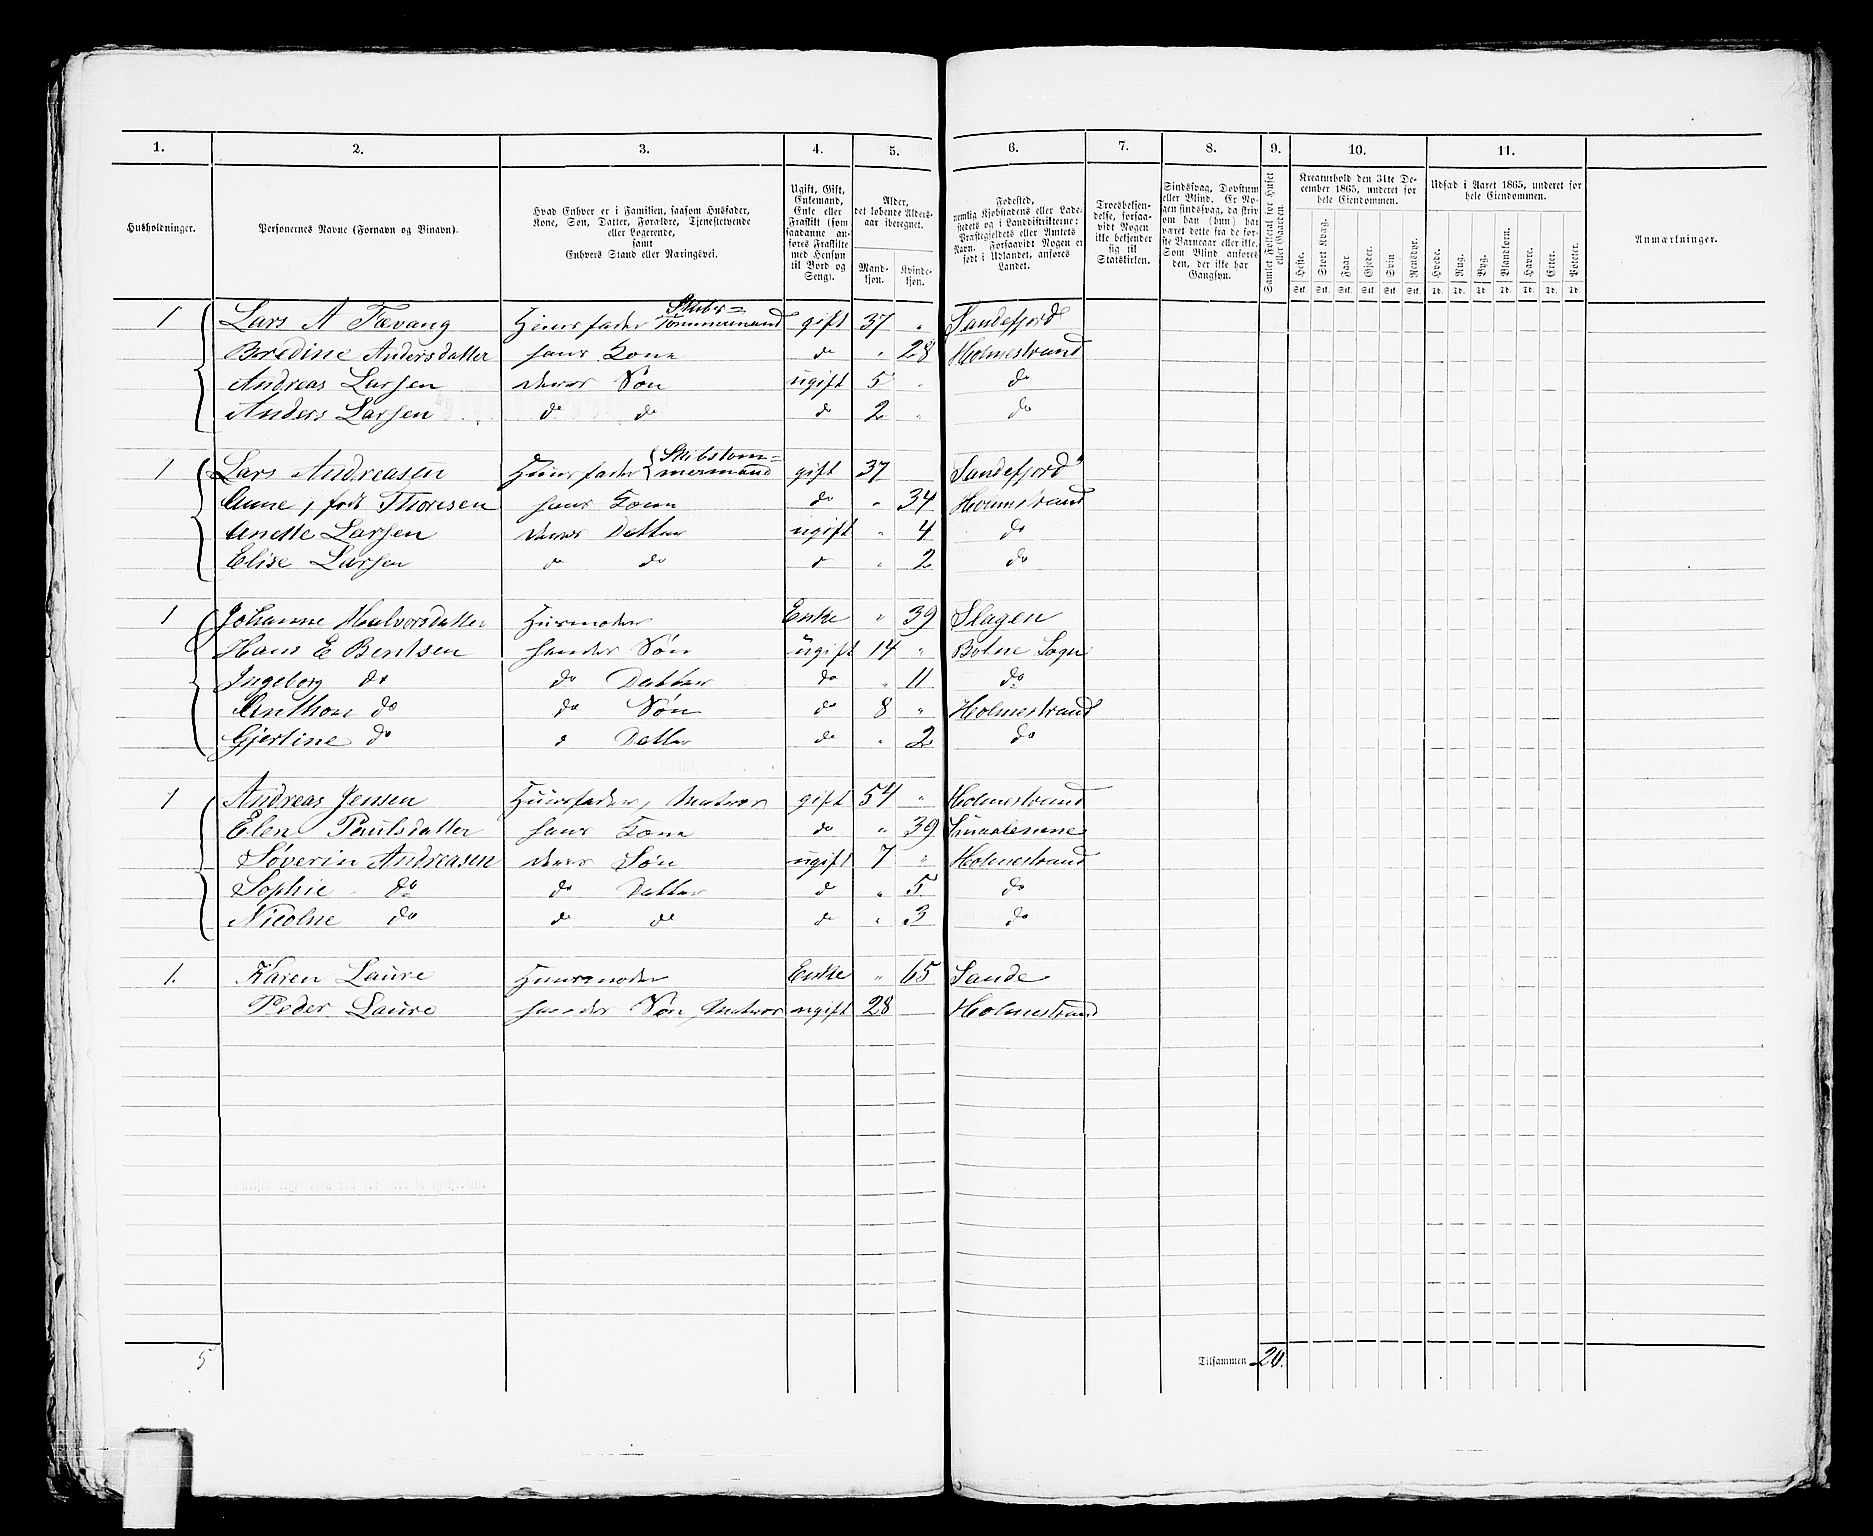 1. 2. 3. 4. 5. 6. 7. 8. 9. 10. 11.
Husholdninger.
Personernes Navne (Fornavn og Tilnavn).
Hvad Enhver er i Familien, saasom Husfader,
Kone, Søn, Datter, Forældre, Tjenestetyende
eller Logerende,
samt
Enhvers Stand eller Næringsvei.
Ugift, Gift,
Enkemand,
Enke eller
Fraskilt (som
saadanne an-
føres Fraskilte
med Hensyn
til Bord og
Seng).
Alder,
det løbende Alders-
aar iberegnet.
Mand-
kjøn.
Kvinde-
kjøn.
Fødested,
nemlig Kjøbstadens eller Lade-
stedets og i Landdistrikterne:
Præstegjeldets eller Amtets
Navn. Forsaavidt Nogen er
født i Udlandet, anføres
Landet.
Troesbekjen-
delse, forsaa-
vidt Nogen
ikke bekjender
sig til
Statskirken.
Sindssvag, Døvstum
eller Blind. Er No-
gen sindssvag, da skriv
om han (hun) har
været dette fra de før-
ste Barneaar eller ikke.
Som Blind anføres
den, der ikke har
Gangsyn.
Samlet Folketal for Huset
eller Gaarden.
Kreaturhold den 31te De-
cember 1865, underet for
hele Eiendommen.
Heste. Stort Kvæg. Faar. Gjeder. Svin. Rensdyr.
Stk. Stk. Stk. Stk. Stk. Stk.
Udsæd i Aaret 1865, underet for
hele Eiendommen.
Hvede. Rug. Byg. Blandkorn. Havre. Erter. Poteter.
Td. Td. Td. Td. Td. Td. Td.
Anmærkninger.
1 Lars A Tævang Huusfader Skibs=Tømmermand gift 37 " Sandefjord
Beredine Andersdatter hans Kone do " 28 Holmestrand
Andreas Larsen deres Søn ugift 5 " do
Anders Larsen do do do 2 " do
1 Lars Andreasen Huusfader Skibstøm=mermand gift 37 Sandefjord
Anne, født Thoresen hans Kone do " 34 Holmestrand
Anette Larsen deres Datter ugift " 4 do
Elise Larsen do do d " 2 do
1 Johanne Halvorsdatter Husmoder Enke " 39 Slagen
Hans E Bentsen hendes Søn ugift 14 " Botne Sogn
Ingeborg do do Datter do " 11 do
Anthon do do Søn do 8 " Holmestrand
Gjertine do d Datter do " 2 do
1 Andreas Jensen Huusfader, Matros gift 54 " Holmestrand
Elen Paulsdatter hans Kone do " 39 Smaalenene
Søverin Andreasen deres Søn ugift 7 " Holmestrand
Sophie do do Datter d " 5 do
Nicoline do do do do " 3 do
1. Karen Laure Huusmoder Enke " 65 Sande
Peder Laure hendes Søn, Matros ugift 28 Holmestrand
5 Tilsammen 20.